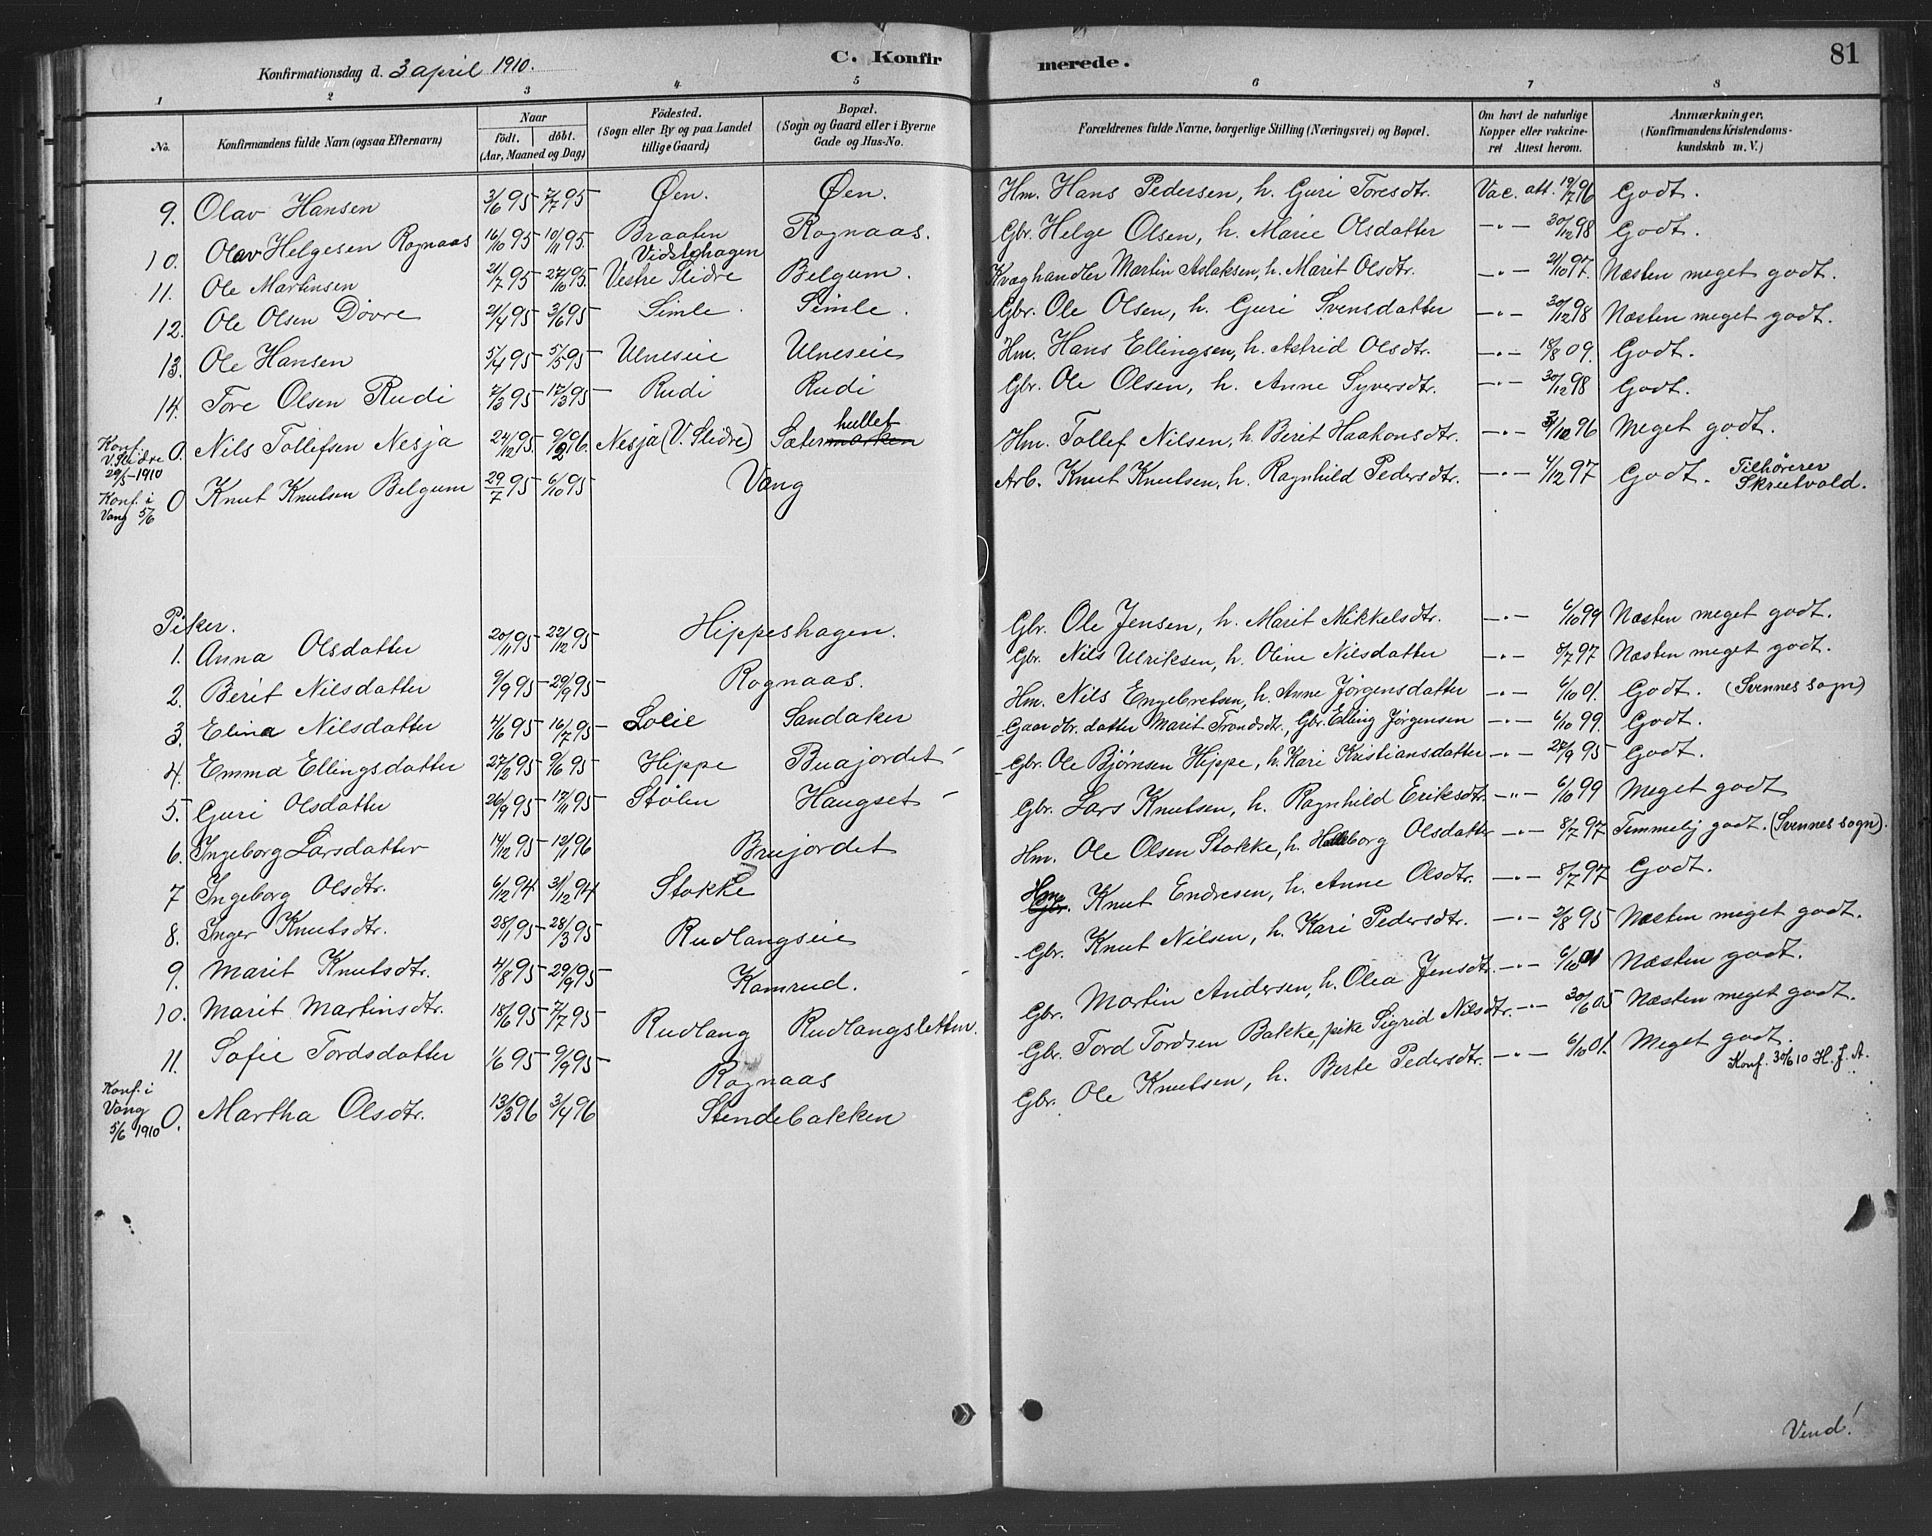 Konfirmationsdag d. 3 april 1910.
C. Konfirmerede.
81
1 2 3 4 5 6 7 8
No. Konfirmandens fulde Navn (ogsaa Efternavn) Naar födt. döbt. (Aar, Maaned og Dag) Födested. (Sogn eller By og paa Landet tillige Gaard) Bopæl. (Sogn og Gaard eller i Byerne Gade og Hus-No. Forældrenes fulde Navne, borgerlige Stilling (Næringsvei) og Bopæl. Om havt de naturlige Kopper eller vakcineret Attest herom. Anmærkninger. (Konfirmandens Kristendomskundskab m. V.)
9. Olav Hansen 3/6 95 7/7 95 Øen. Øen. Hm. Hans Pedersen, h. Guri Toresdtr. Vac. att. 19/7 96 Godt.
10. Olav Helgesen Rognaas 16/10 95 10/11 95. Braaten Rognaas. Gbr. Helge Olsen, h. Marie Olsdatter -"- 30/12 98 Godt.
11. Ole Martinsen 21/7 95 27/10 95. Vidstehagen Vestre Slidre Belgum. Kvæghandler Martin Aslaksen, h. Marit Olsdtr. -"- 21/10 97. Næsten meget godt.
12. Ole Olsen Døvre 21/4 95 3/6 95 Simle. Simle. Gbr. Ole Olsen, h. Guri Svensdatter -"- 30/12 98 Næsten meget godt.
13. Ole Hansen 5/4 95 5/5 95 Ulneseie Ulneseie Hm. Hans Ellingsen, h. Astrid Olsdtr. -"- 18/8 09. Godt.
14. Tore Olsen Rudi 7/3 95 17/3 95 Rudi Rudi Gbr. Ole Olsen, h. Anne Syversdtr. -"- 30/12 98 Godt.
Konf. V. Slidre 29/5-1910 0. Nils Tollefsen Nesja 24/12 95. 9/2 96. Nesja (V. Slidre) Sætermarken hullet Hm. Tollef Nilsen, h. Berit Haakonsdtr. -"- 3/12 96 Meget godt.
Konf. i Vang 5/6 0 Knut Knutsen Belgum 29/7 95 6/10 95 Vang Arb. Knut Knutsen, h. Ragnhild Pedersdtr. -"- 4/12 97 Godt. Tilhører Skrutvold.
Piker.
1. Anna Olsdatter 20/11 95 22/12 95 Hippeshagen. Gbr. Ole Jensen, h. Marit Mikkelsdtr. -"- 6/10 99 Næsten meget godt.
2. Berit Nilsdatter 9/9 95 29/9 95 Rognaas. Gbr. Nils Ulriksen, h. Oline Nilsdatter -"- 8/7 97 Næsten meget godt.
3. Elina Nilsdatter 4/6 95 16/7 95 Loeie Sandaker Hm. Nils Engebretsen, h. Anne Jørgensdatter -"- 6/10 01. Godt. (Svennes sogn)
4. Emma Ellingsdatter 27/2 95 9/6 95 Hippe Buajordet Gaardbr. datter Marit Trondsdtr., Gbr. Elling Jørgensen -"- 6/10 99. Godt.
5. Guri Olsdatter 26/9 95 17/11 95 Stølen Haugset Gbr. Ole Bjørnsen Hippe, h. Kari Kristiansdatter -"- 27/9 95 Godt.
6. Ingeborg Larsdatter 14/12 95 12/1 96 Brujordet Gbr. Lars Knutsen, h. Ragnhild Eriksdtr. -"- 6/10 99 Meget godt
7 Ingeborg Olsdtr. 6/12 94 31/12 94 Stokke Hm. Ole Olsen Stokke, h. Halleborg Olsdatter -"- 8/7 97 Temmelig godt. (Svennes sogn).
8. Inger Knutsdtr. 28/1 95 28/3 95 Rudlangseie Hm. Gbr. Knut Endresen, h. Anne Olsdtr. -"- 8/7 97 Godt.
9. Marit Knutsdtr. 4/8 95 29/9 95 Kamrud. Gbr. Knut Nilsen, h. Kari Pedersdtr. -"- 2/8 95 Næsten meget godt.
10. Marit Martinsdtr. 18/6 95 7/7 95 Rudlang Rudlangsletten. Gbr. Martin Andersen, h. Olea Jensdtr. -"- 6/10 01 Næsten godt.
11. Sofie Tordsdatter 1/6 95 9/9 95 Rognaas Gbr. Tord Tordsen Bakke, pike Sigrid Nilsdtr. -"- 30/6 05 Næsten meget godt.
Konf. i Vang 5/6 1910 0. Martha Olsdtr. 13/3 96 3/4 96 Stendebakken Gbr. Ole Knutsen, h. Berte Pedersdtr. -"- 6/10 01. Meget godt. Konf. 30/6 10 H. J. A.
Vend!